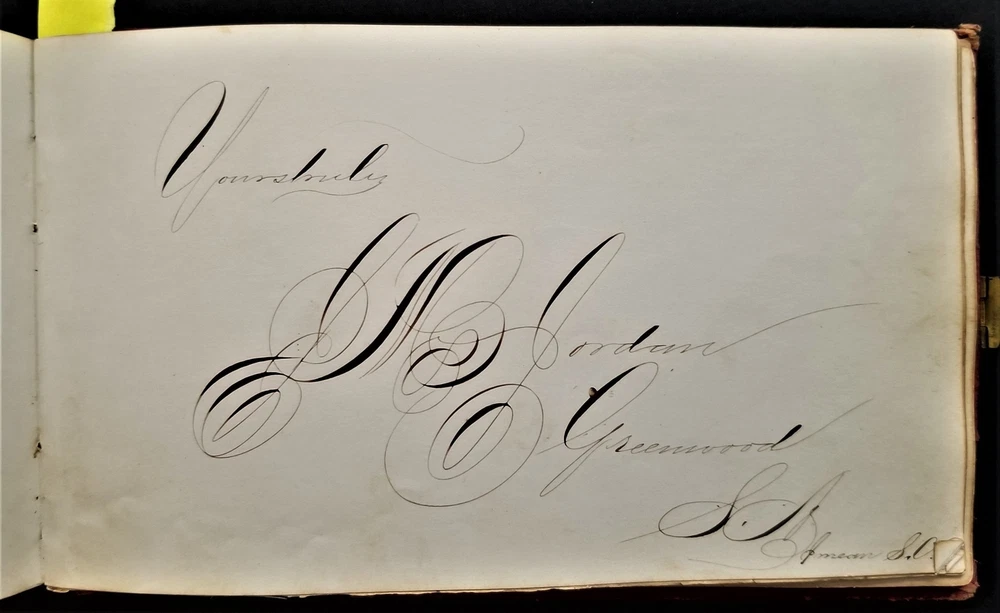 Yours truly
Jordan
Greenwood
S.
I mean S.C.